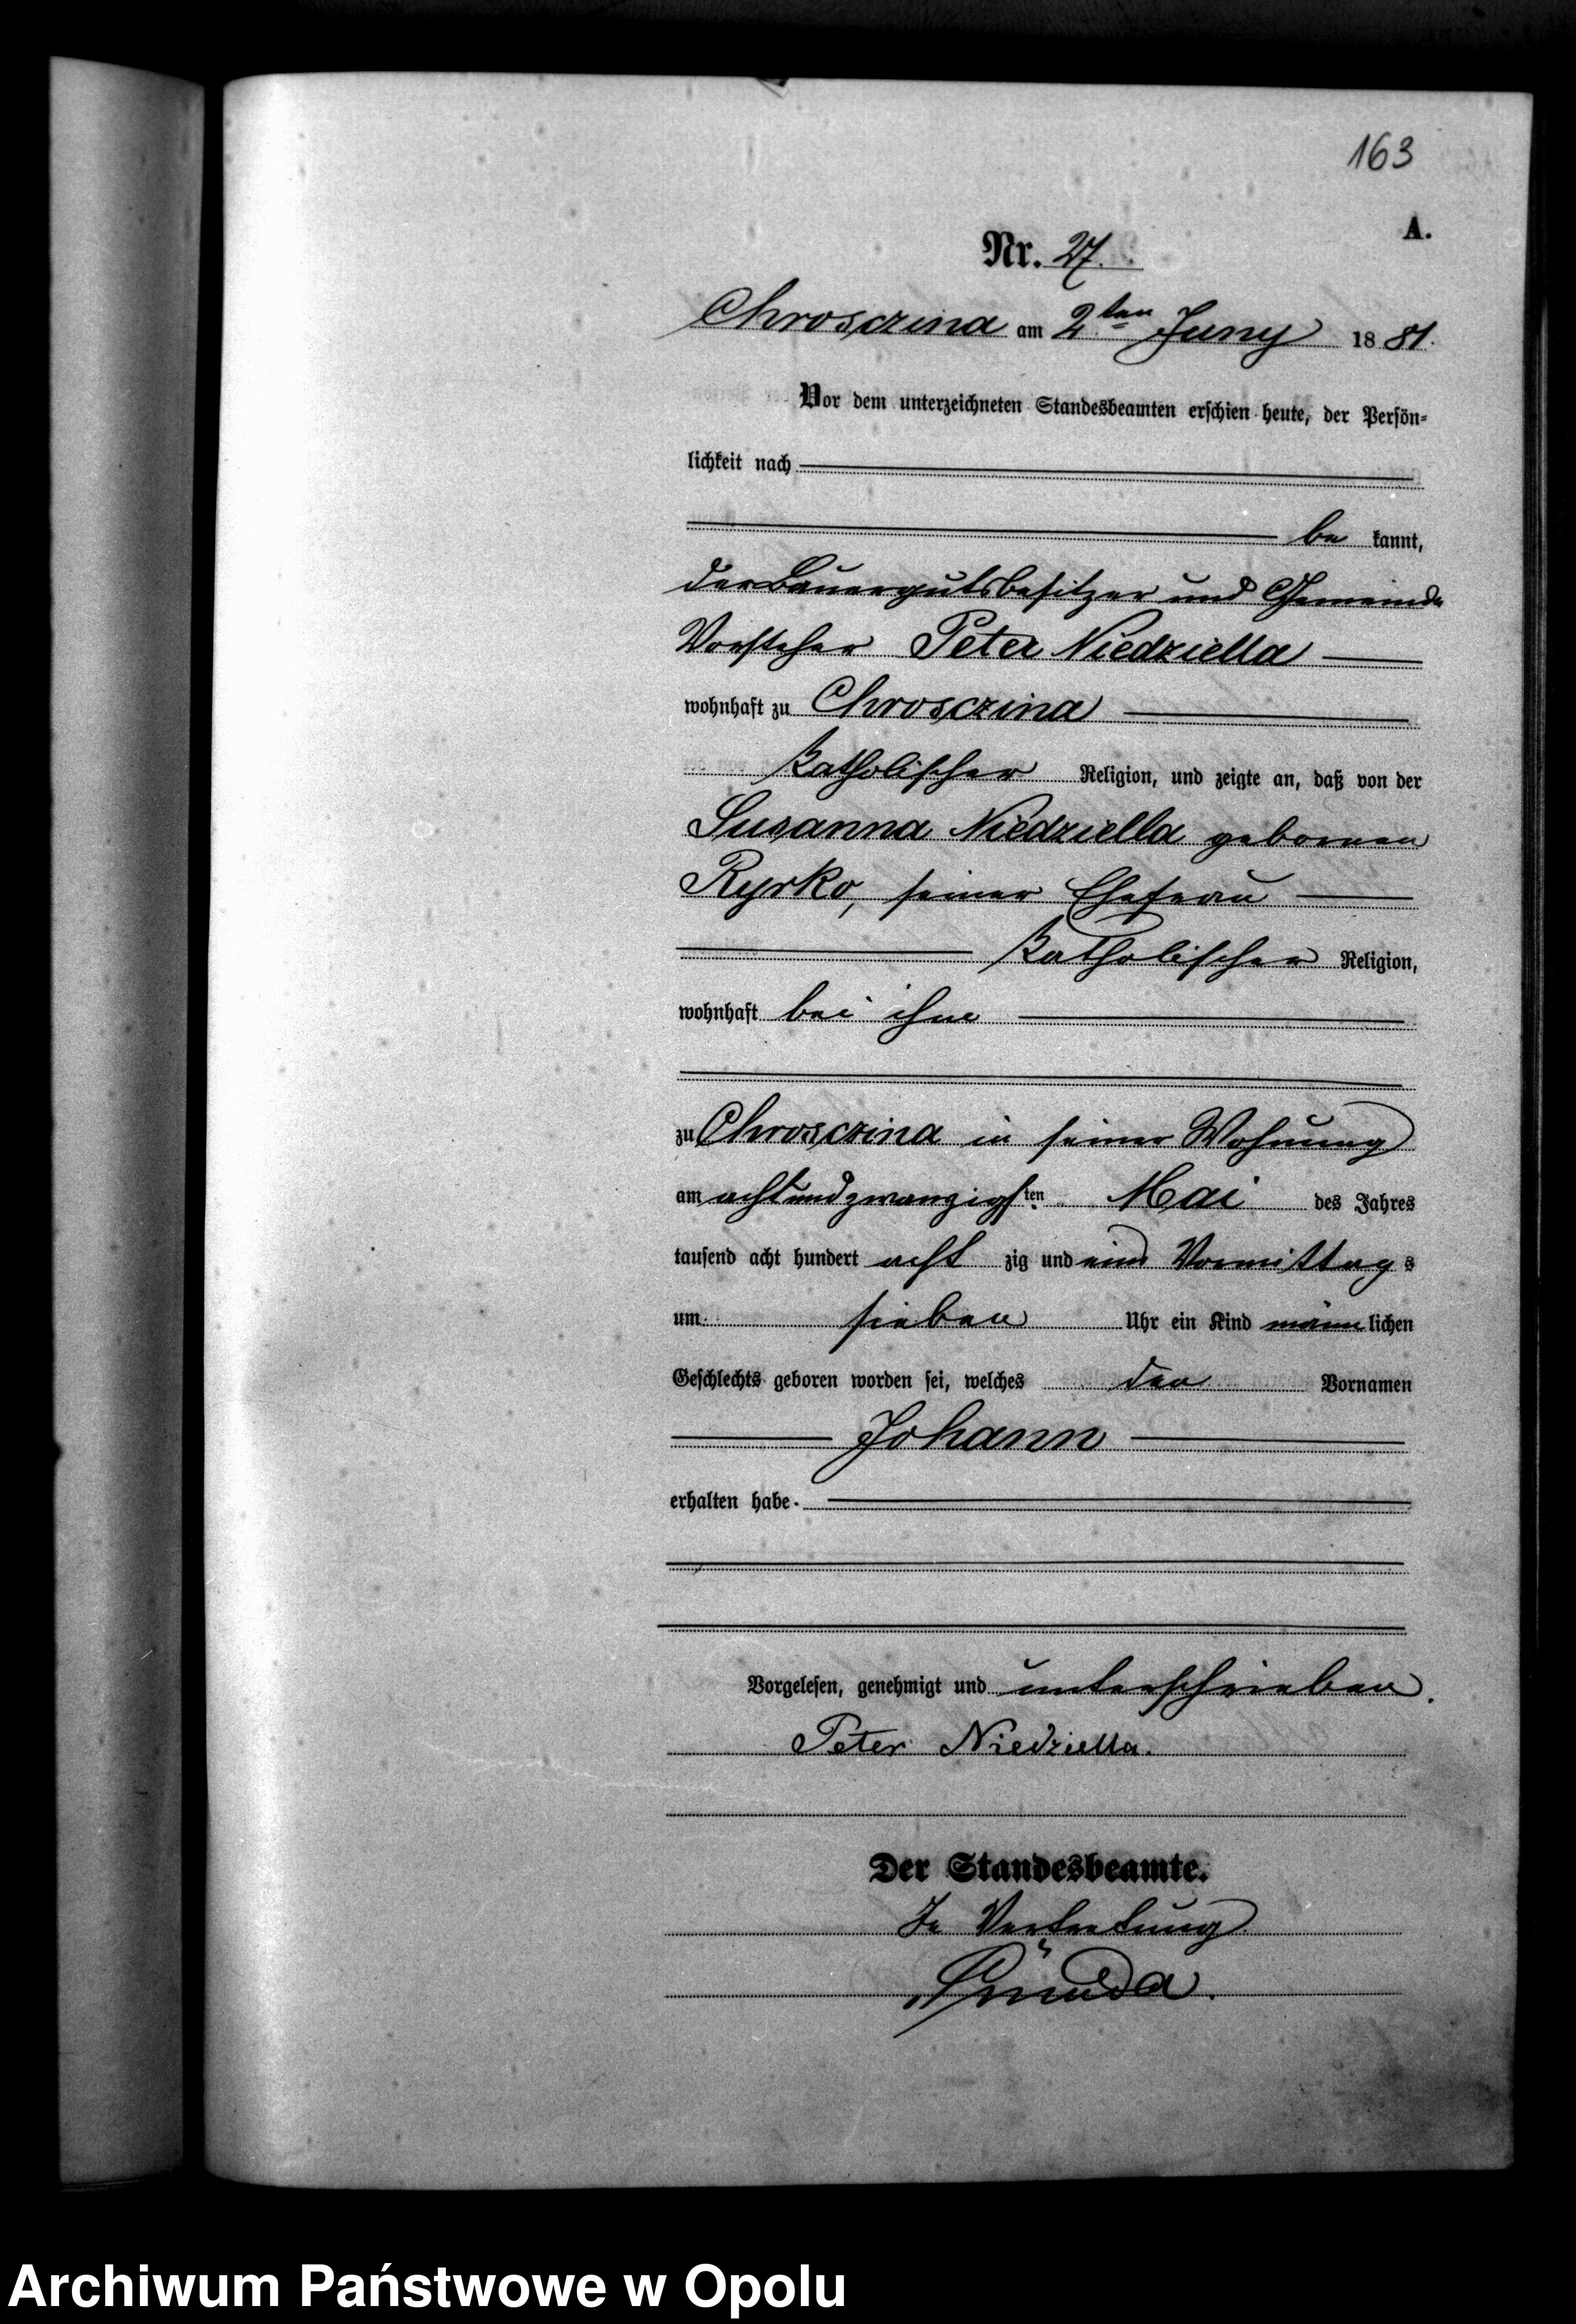 163
A.
Nr. 27.
Chrosczina am 2ten Juny 1881.
Vor dem unterzeichneten Standesbeamten erschien heute, der Persön-
lichkeit nach
be kannt,
der Bauergutsbesitzer und Gemeinde
Vorsteher Peter Niedziella
wohnhaft zu Chrosczina
Katholischer Religion, und zeigte an, daß von der
Susanna Niedziella gebornen
Kyrko, seiner Ehefrau
Katholischer Religion,
wohnhaft bei ihm
zu Chrosczina in seiner Wohnung
am achtundzwanzigsten Mai des Jahres
tausend acht hundert acht zig und eins Vormittags
um sieben Uhr ein Kind männlichen
Geschlechts geboren worden sei, welches den Vornamen
Johann
erhalten habe.
Vorgelesen, genehmigt und unterschrieben.
Peter Niedziella.
Der Standesbeamte.
In Vertretung
Archiwum Państwowe w Opolu